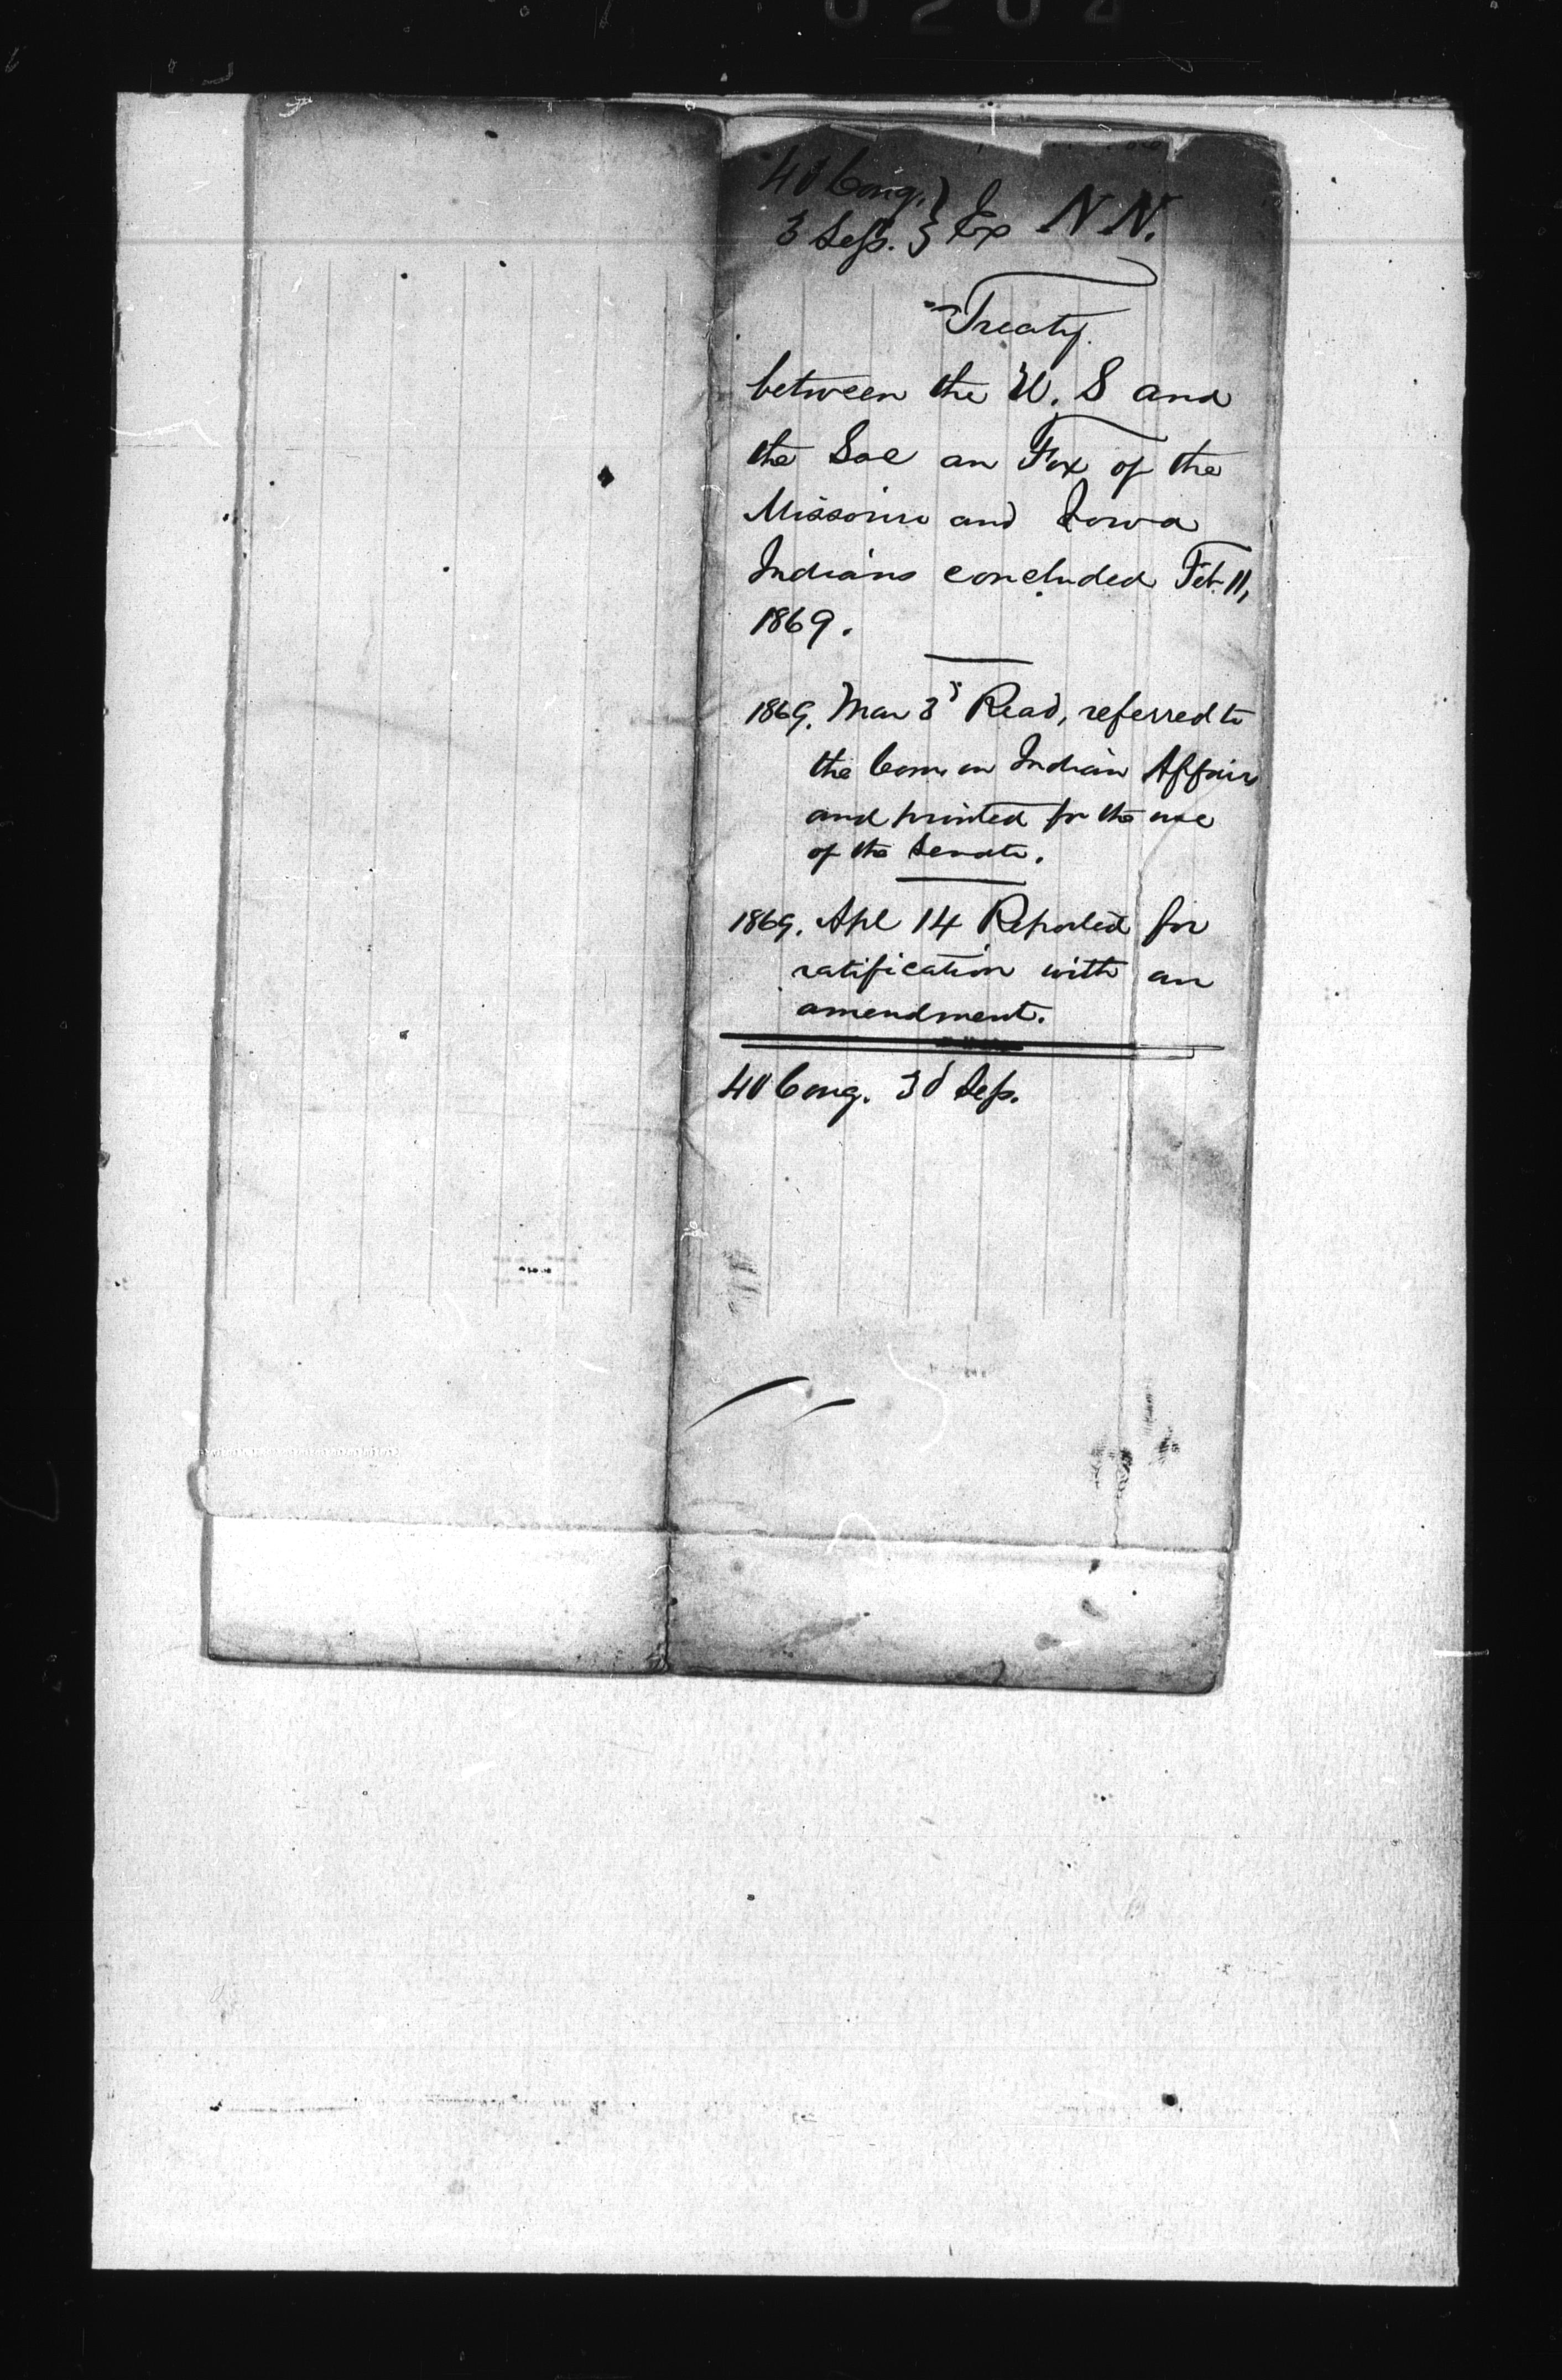 40 Cong. } Ex N N.
3 Sess. }
Treaty.
between the U. S and
the Sac an Fox of the
Missouri and Iowa
Indians concluded Feb. 11,
1869.
1869. Mar 3d Read, referred to
the Com on Indian Affairs
and printed for the use
of the Senate.
1869. Apl 14 Reported for
ratification with an
amendment.
40 Cong. 3d Sess.